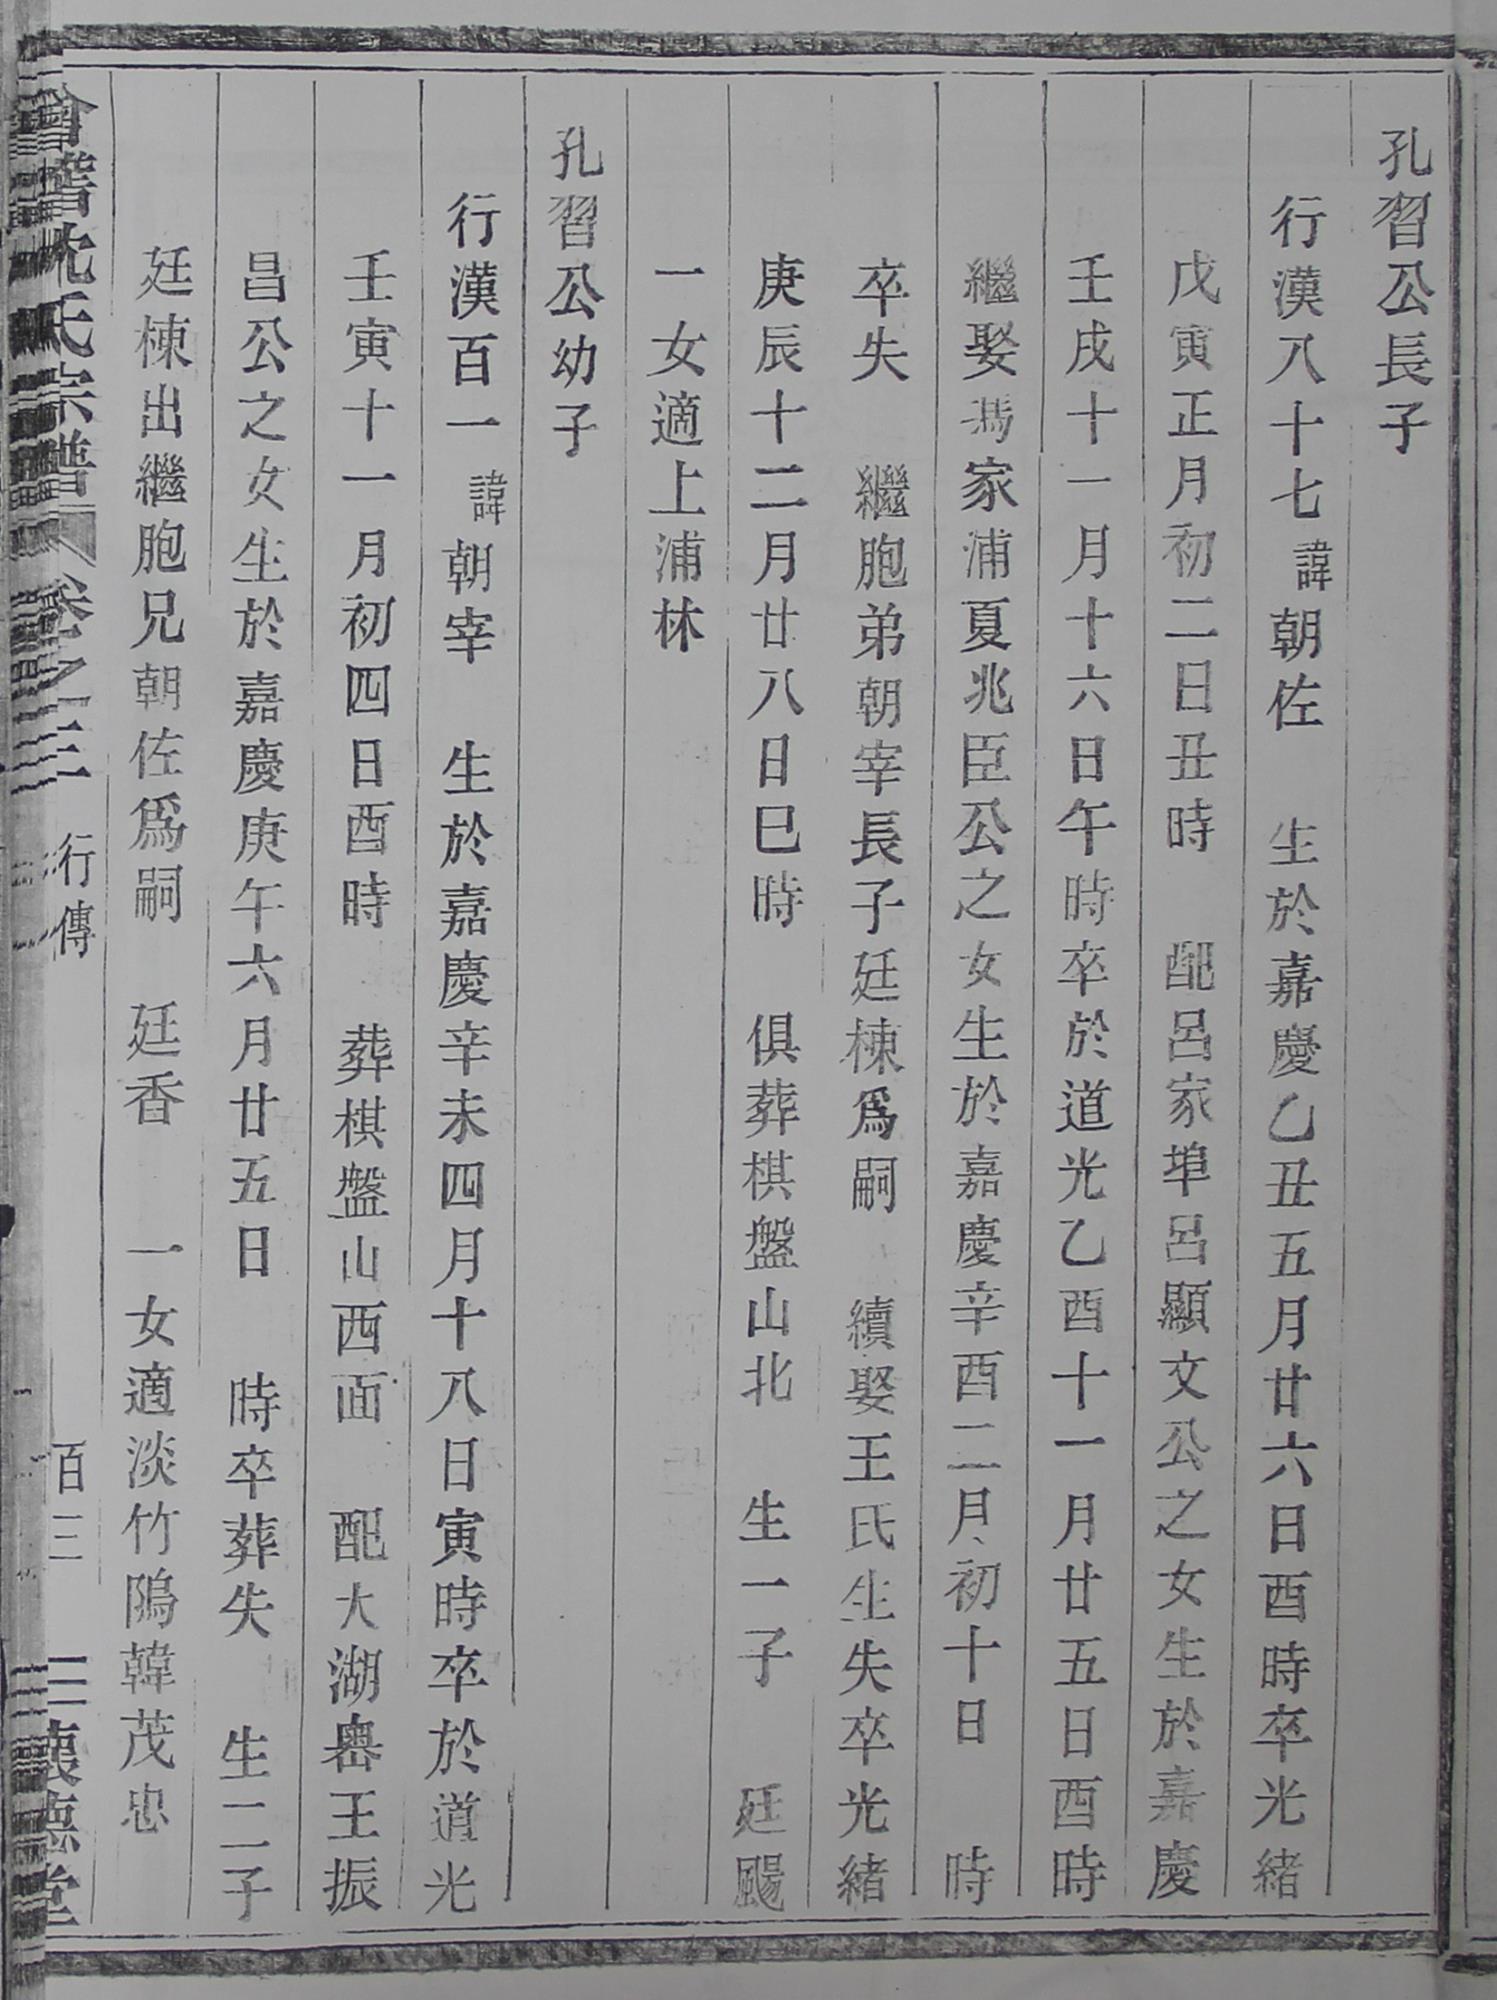 孔習公長子
行漢八十七諱朝佐　生於嘉慶乙丑五月廿六日酉時卒光緒
戊寅正月初二日丑時　配呂家埠呂顯文公之女生於嘉慶
壬戌十一月十六日午時卒於道光乙酉十一月廿五日酉時
繼娶馮家浦夏兆臣公之女生於嘉慶辛酉二月初十日　時
卒失　繼胞弟朝宰長子廷棟爲嗣　續娶王氏生失卒光緒
庚辰十二月廿八日巳時　俱葬棋盤山北　生一子　廷颺
一女適上浦林
孔習公幼子
行漢百一諱朝宰　生於嘉慶辛未四月十八日寅時卒於道光
壬寅十一月初四日酉時　葬棋盤山西面　配大湖嶴王振
昌公之女生於嘉慶庚午六月廿五日　時卒葬失　生二子
廷棟出繼胞兄朝佐爲嗣　廷香　一女適淡竹隖韓茂忠
會稽沈氏宗譜　卷之三　行傳　百三　懷德堂